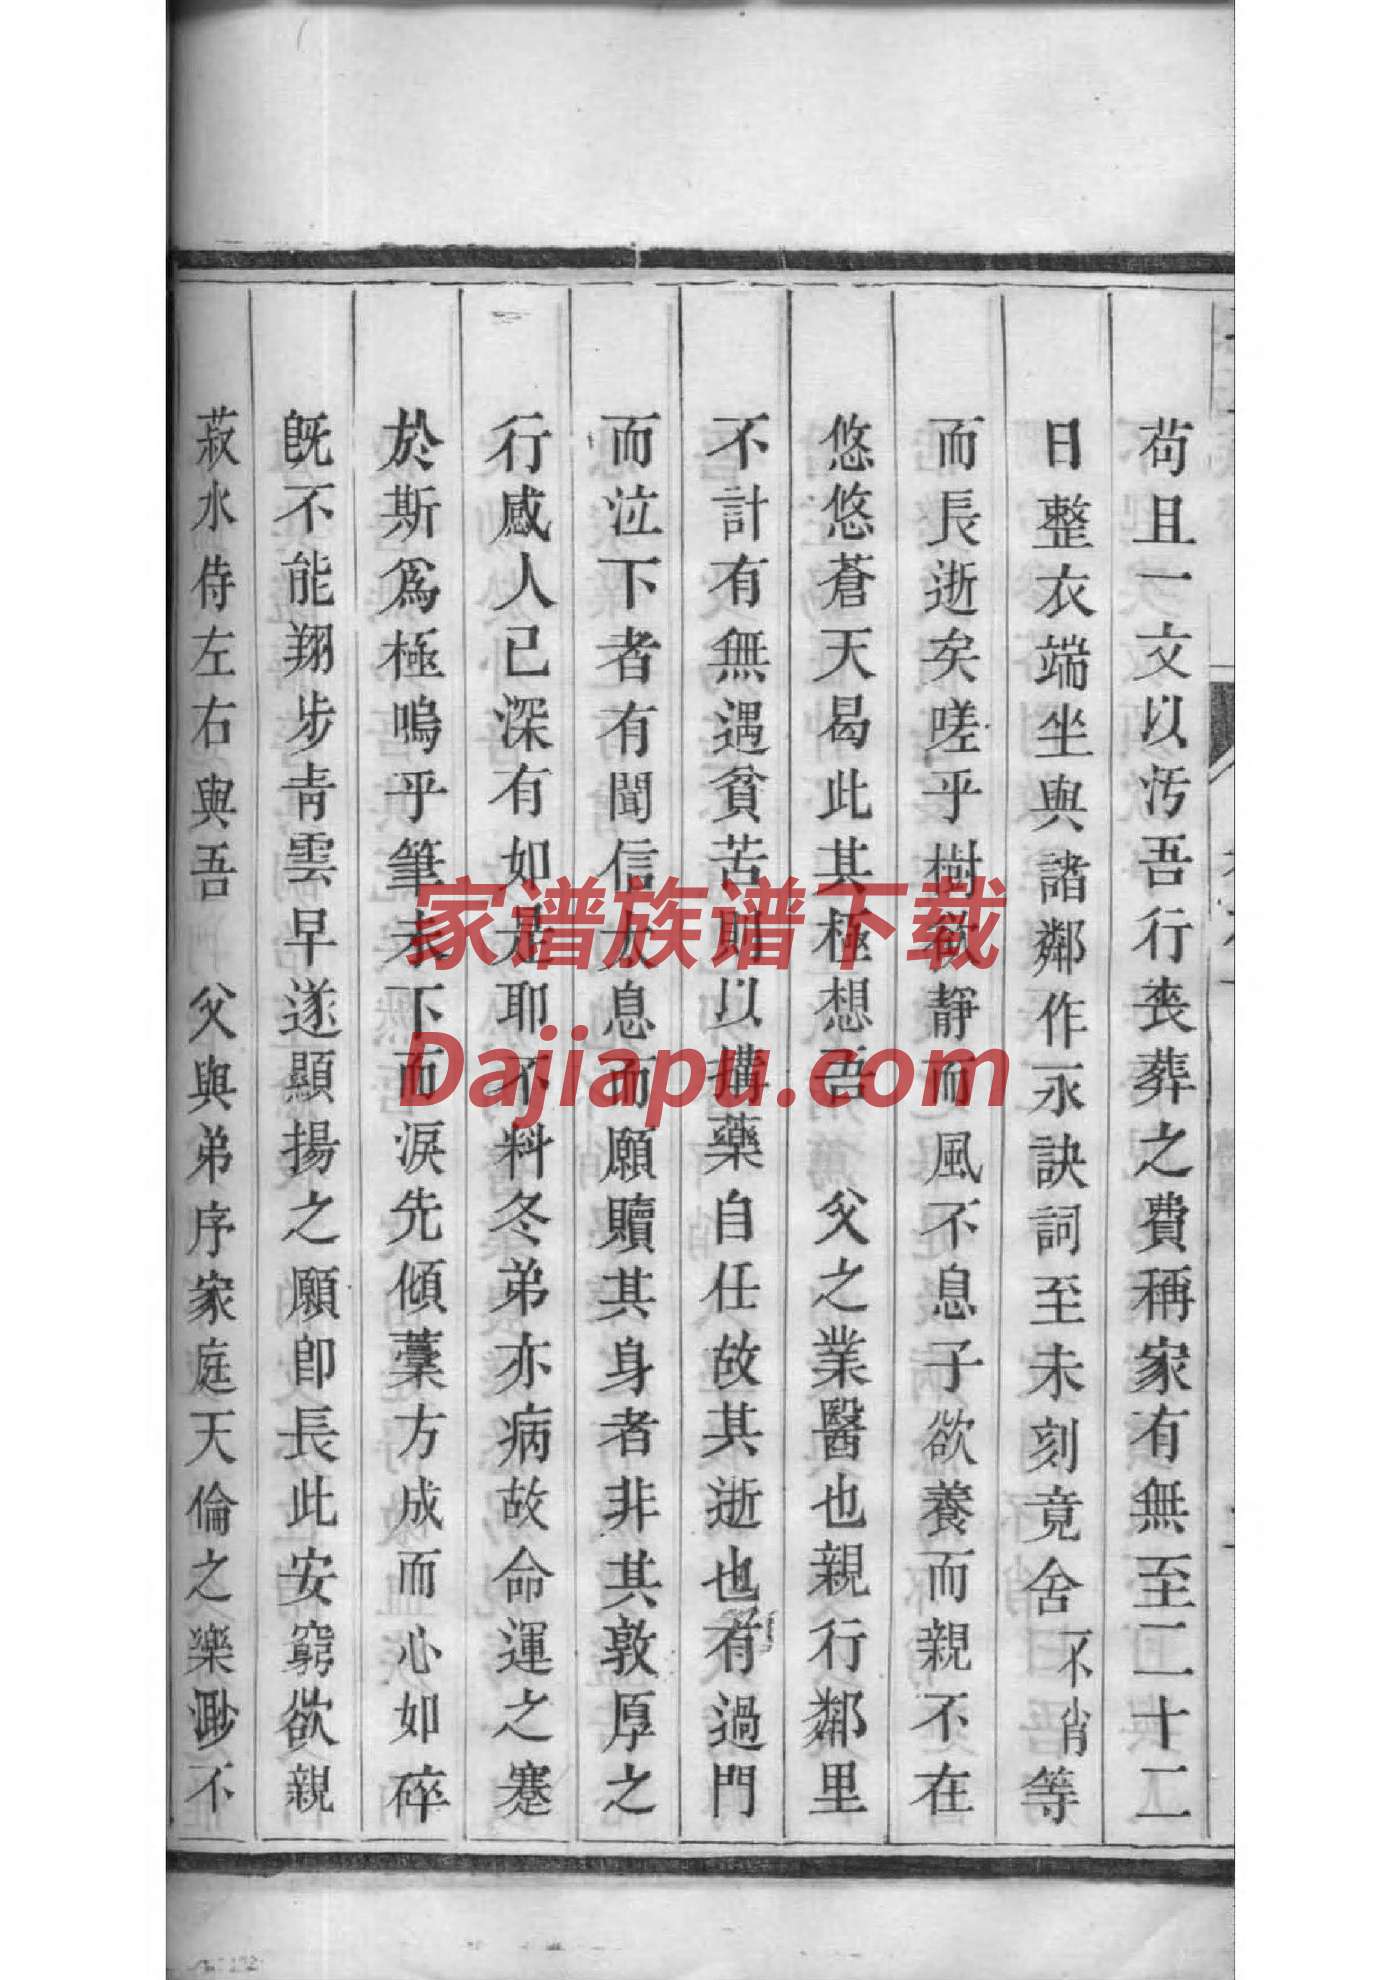 苟且一文以汚吾行喪葬之費稱家有無至二十二
日整衣端坐與諸鄰作永訣詞至未刻竟舍不肖等
而長逝矣嗟乎樹欲靜而風不息子欲養而親不在
悠悠蒼天曷此其極想吾　父之業醫也親行鄰里
不計有無遇貧苦則以購藥自任故其逝也有過門
而泣下者有聞信太息而願贖其身者非其敦厚之
行感人已深有如是耶不料冬弟亦病故命運之蹇
於斯爲極嗚乎筆未下而淚先傾藁方成而心如碎
旣不能翔步靑雲早遂顯揚之願卽長此安窮欲親
菽水侍左右與吾　父與弟序家庭天倫之樂渺不
家谱族谱下载
Dajiapu.com